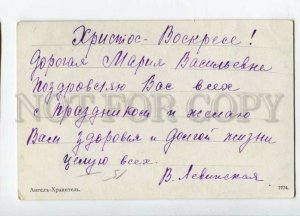 Христос- Воскресе!
Дорогая Мария Васильевне
Поздровляю Вас всех
с Праздником и желаю
Вам здоровья и долгой жизни
целую всех.
В. Левинская
Ангелъ-Хранитель.
NOT FOR COPY